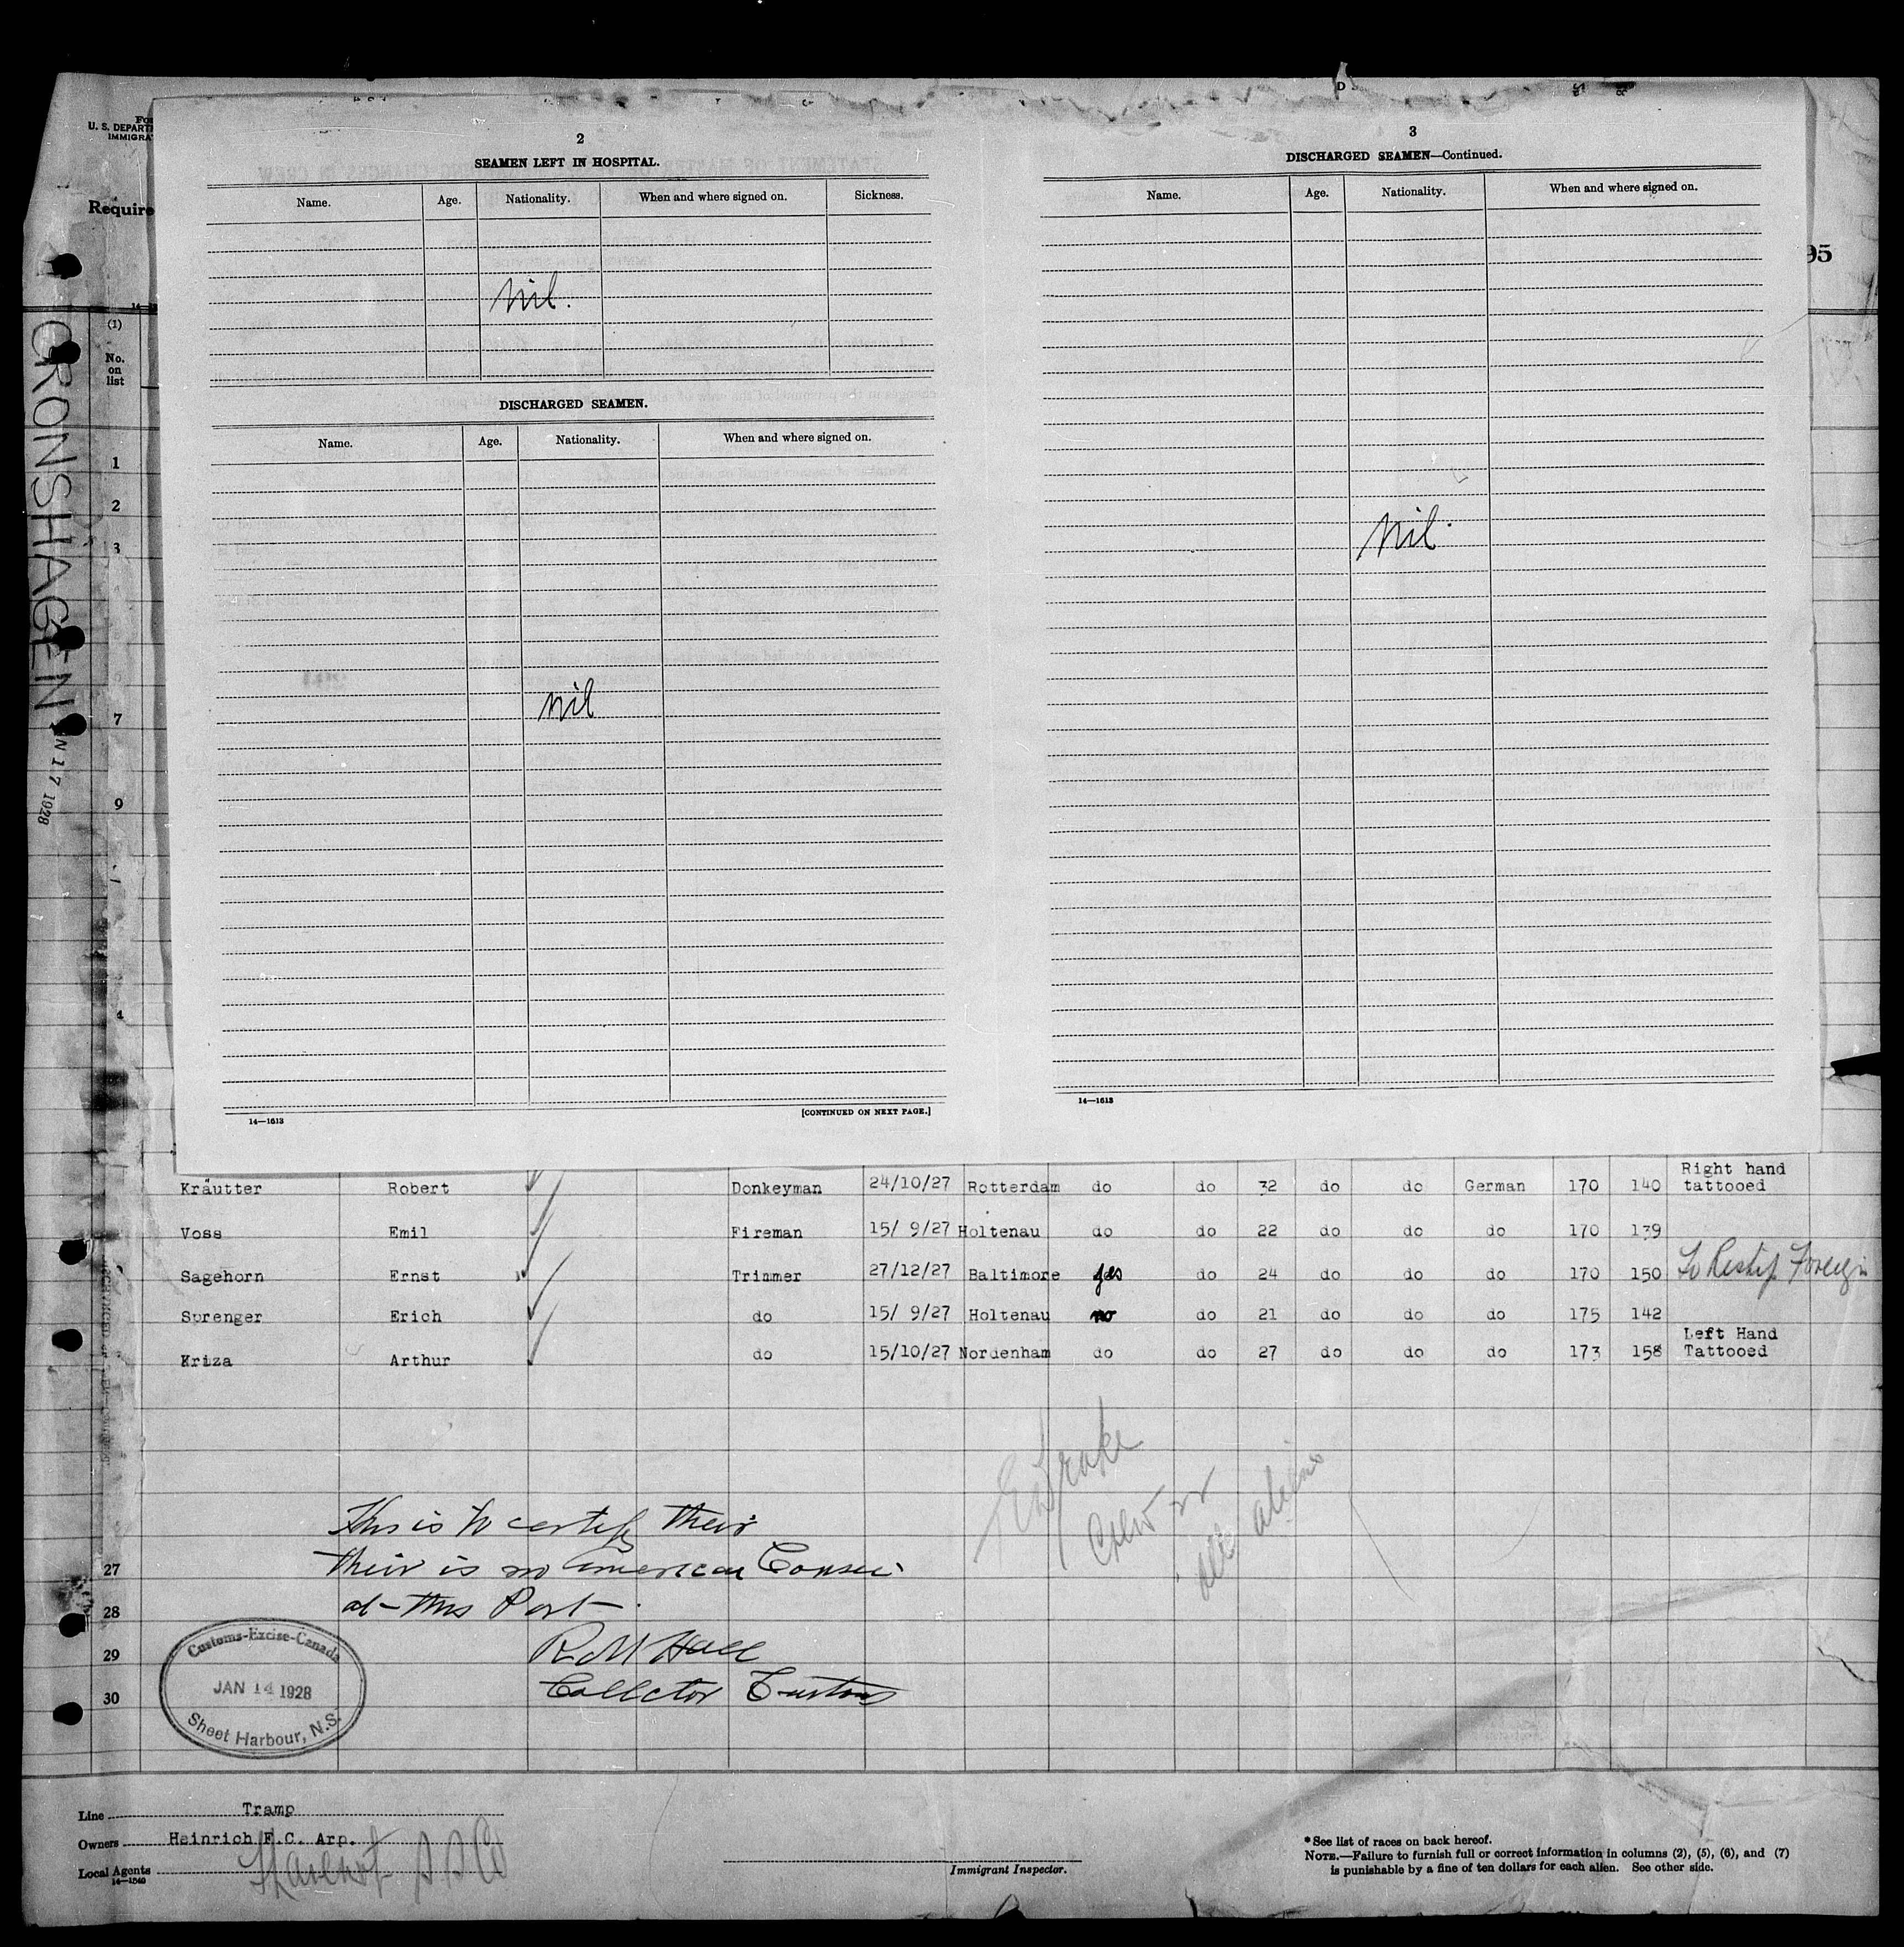 For
U. S. DEPART
IMMIGRA
Require
95
14—1
(1)
No.
on
list
CRONSHAGEN
N 17 1928
1
2
3
7
9
4
2
SEAMEN LEFT IN HOSPITAL.
Name. Age. Nationality. When and where signed on. Sickness.
Nil.
DISCHARGED SEAMEN.
Name. Age. Nationality. When and where signed on.
Nil
14—1613 [CONTINUED ON NEXT PAGE.]
3
DISCHARGED SEAMEN—Continued.
Name. Age. Nationality. When and where signed on.
Nil.
14—1613
Right hand
Kräutter Robert Donkeyman 24/10/27 Rotterdam do do 32 do do German 170 140 tattooed
Voss Emil Fireman 15/ 9/27 Holtenau do do 22 do do do 170 139
Sagehorn Ernst Trimmer 27/12/27 Baltimore yes do 24 do do do 170 150 To Reship Foreign
Sprenger Erich do 15/ 9/27 Holtenau no do 21 do do do 175 142
Left Hand
Kriza Arthur do 15/10/27 Nordenham do do 27 do do do 173 158 Tattooed
Crew 22
all aliens
This is to certify their
their is no American Consul
at this Port.
R M Hall
Collector Customs
27
28
29
30
Customs-Excise-Canada
JAN 14 1928
Sheet Harbour, N.S.
Line Tramp
Owners Heinrich F.C. Arp.
Local Agents S S Co
14—1540
Immigrant Inspector.
*See list of races on back hereof.
NOTE.—Failure to furnish full or correct information in columns (2), (5), (6), and (7)
is punishable by a fine of ten dollars for each alien. See other side.